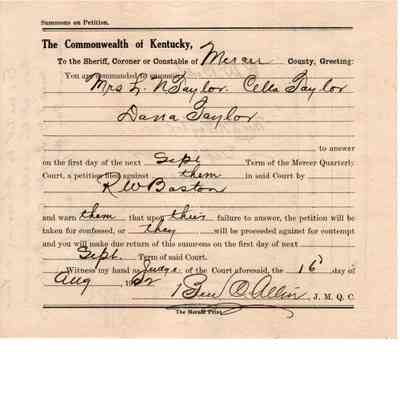 Summons on Petition.
The Commonwealth of Kentucky,
To the Sheriff, Coroner or Constable of Mercer County, Greeting:
You are commanded to summon
Mrs L. N Taylor. Cella Taylor
Dana Taylor
to answer
on the first day of the next Sept Term of the Mercer Quarterly
Court, a petition filed against them in said Court by
R W Baston
and warn them that upon their failure to answer, the petition will be
taken for confessed, or they will be proceeded against for contempt
and you will make due return of this summons on the first day of next
Sept. Term of said Court.
Witness my hand as Judge of the Court aforesaid, the 16 day of
Aug 19
Ben O. Allin, J. M. Q. C.
The Herald Print